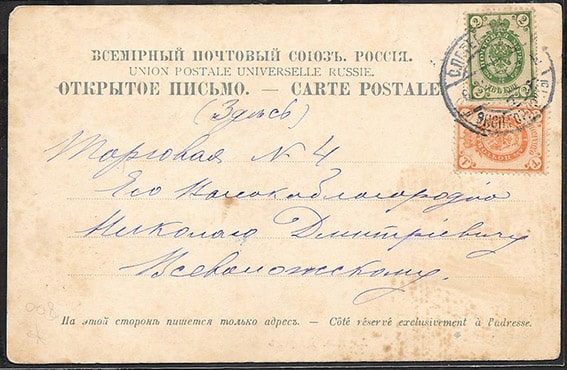 ВСЕМІРНЫЙ ПОЧТОВЫЙ СОЮЗЪ. РОССІЯ.
UNION POSTALE UNIVERSELLE RUSSIE.
ОТКРЫТОЕ ПИСЬМО. — CARTE POSTALE
2 2
2 2
(Здѣсь)
Торговая N 4
Его Высокоблагородію
Николаю Дмитріевичу
Всеволожскому.
На этой сторонѣ пишется только адресъ. — Côté réservé exclusivement à l'adresse.